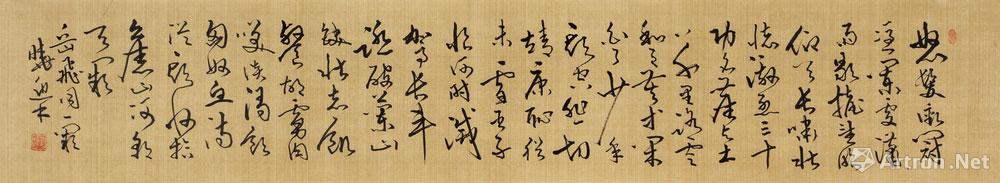 怒髮衝冠
憑闌處瀟
雨歇抬望眼
仰天長嘯壯
懷激烈三十
功名塵與土
八千里路雲
和月莫等閑
白了少年
頭空悲切
靖康恥猶
未雪臣子
恨何時滅
駕長車
踏破蘭山
缺壯志飢
餐胡虜肉
笑談渴飲
匈奴血待
從頭收拾
舊山河朝
天闕
岳飛詞一闋
Artron.Net